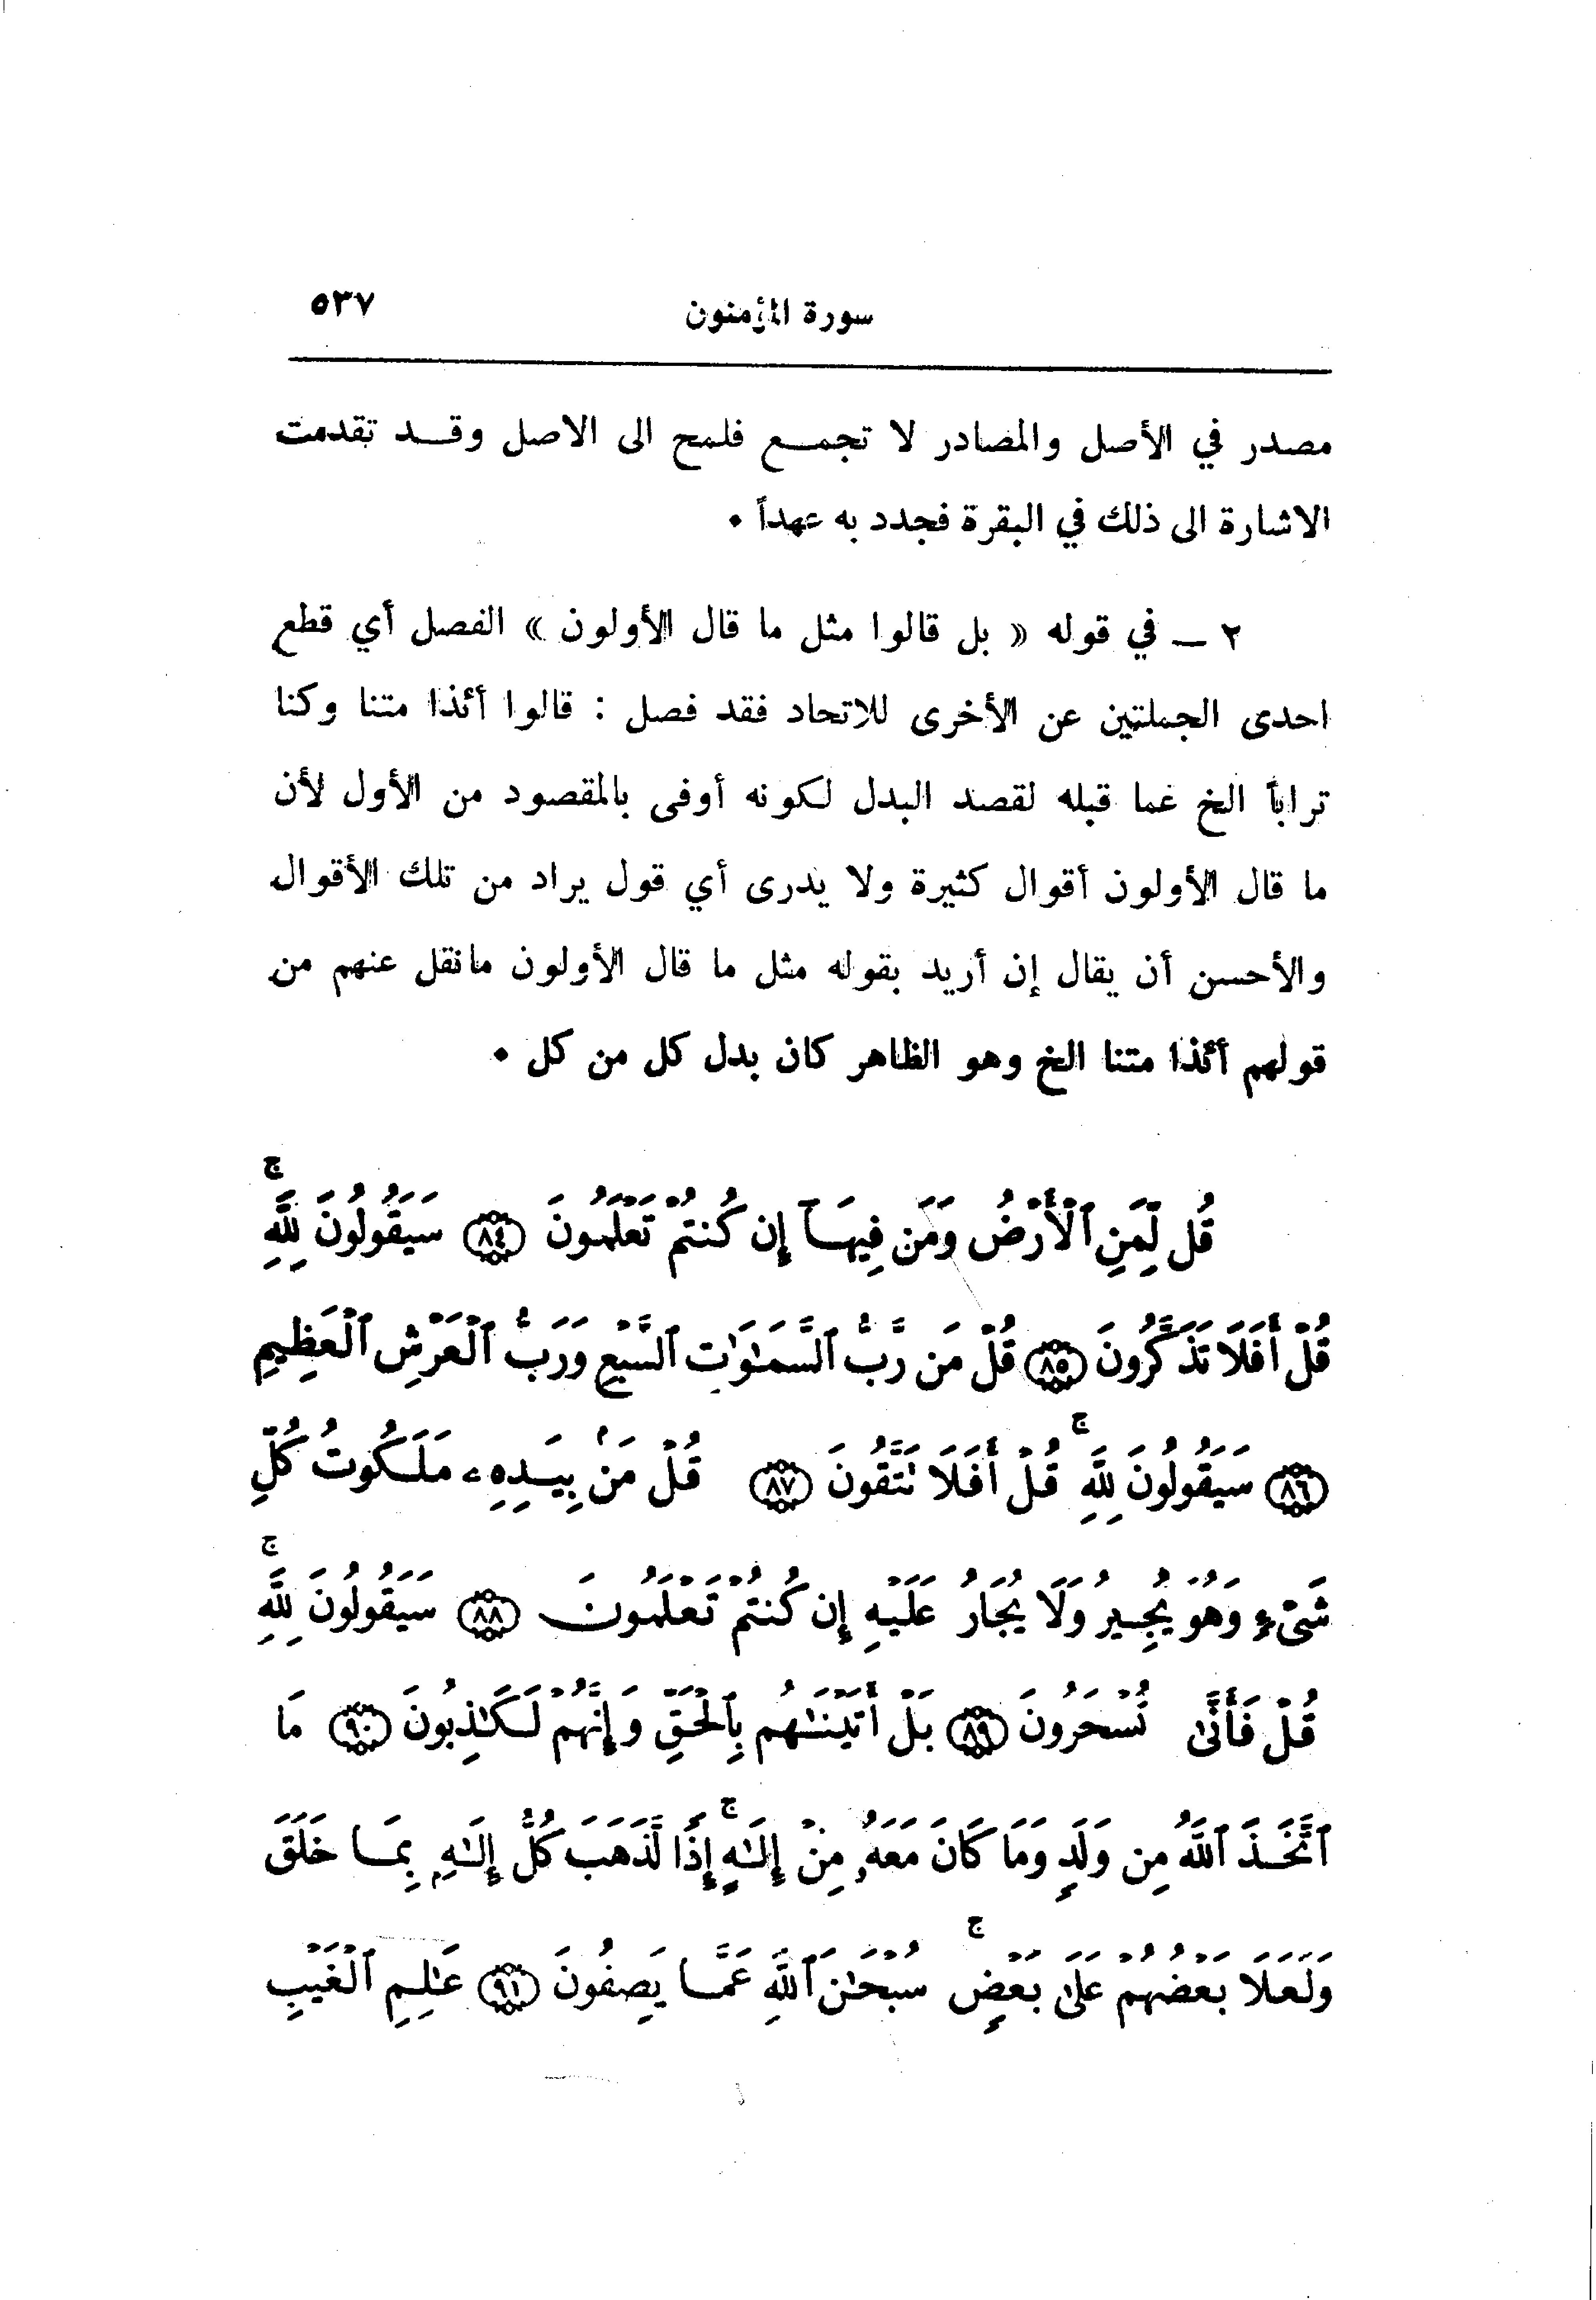 سورة المؤمنون ٥٣٧
مصدر في الأصل والمصادر لا تجمع فلمح الى الاصل وقد تقدمت
الاشارة الى ذلك في البقرة فجدد به عهداً ٠
٢ ــ في قوله « بل قالوا مثل ما قال الأولون » الفصل أي قطع
احدى الجملتين عن الأخرى للاتحاد فقد فصل : قالوا أئذا متنا وكنا
تراباً الخ عما قبله لقصد البدل لكونه أوفى بالمقصود من الأول لأن
ما قال الأولون أقوال كثيرة ولا يدرى أي قول يراد من تلك الأقوال
والأحسن أن يقال إن أريد بقوله مثل ما قال الأولون مانقل عنهم من
قولهم أئذا متنا الخ وهو الظاهر كان بدل كل من كل ٠
قُل لِّمَنِ ٱلْأَرْضُ وَمَن فِيهَآ إِن كُنتُمْ تَعْلَمُونَ ﴿٨٤﴾ سَيَقُولُونَ لِلَّهِ ۚ
قُلْ أَفَلَا تَذَكَّرُونَ ﴿٨٥﴾ قُلْ مَن رَّبُّ ٱلسَّمَـٰوَٰتِ ٱلسَّبْعِ وَرَبُّ ٱلْعَرْشِ ٱلْعَظِيمِ
﴿٨٦﴾ سَيَقُولُونَ لِلَّهِ ۚ قُلْ أَفَلَا تَتَّقُونَ ﴿٨٧﴾ قُلْ مَنۢ بِيَدِهِۦ مَلَكُوتُ كُلِّ
شَىْءٍ وَهُوَ يُجِيرُ وَلَا يُجَارُ عَلَيْهِ إِن كُنتُمْ تَعْلَمُونَ ﴿٨٨﴾ سَيَقُولُونَ لِلَّهِ ۚ
قُلْ فَأَنَّىٰ تُسْحَرُونَ ﴿٨٩﴾ بَلْ أَتَيْنَـٰهُم بِٱلْحَقِّ وَإِنَّهُمْ لَكَـٰذِبُونَ ﴿٩٠﴾ مَا
ٱتَّخَذَ ٱللَّهُ مِن وَلَدٍ وَمَا كَانَ مَعَهُۥ مِنْ إِلَـٰهٍ ۚ إِذًا لَّذَهَبَ كُلُّ إِلَـٰهٍۭ بِمَا خَلَقَ
وَلَعَلَا بَعْضُهُمْ عَلَىٰ بَعْضٍ ۚ سُبْحَـٰنَ ٱللَّهِ عَمَّا يَصِفُونَ ﴿٩١﴾ عَـٰلِمِ ٱلْغَيْبِ